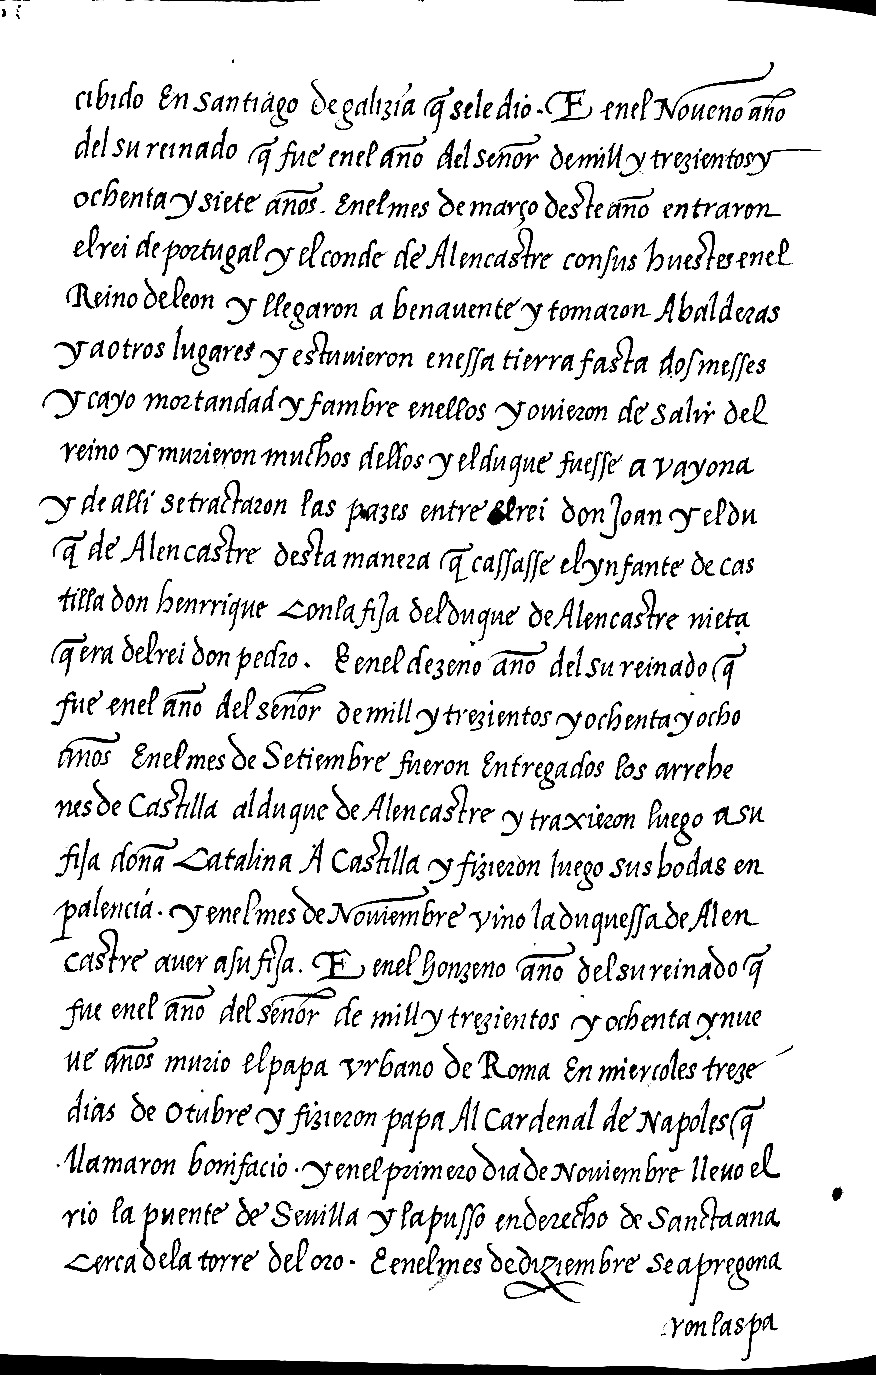 cibido En santiago de galizia q̃ sele dio. E enel Noueno año
del su reinado q̃ fue enel año del señor de mill y trezientos y
ochenta y siete años. Enel mes de março deste año entraron
el rei de portugal y el conde de Alencastre con sus huestes enel
Reino de leon y llegaron a benauente y tomaron Abalderas
y a otros lugares y estuuieron en essa tierra fasta dos messes
y cayo mortandad y fambre enellos y ouieron de salir del
reino y murieron muchos dellos y el duque fuesse a vayona
y de alli se tractaron las pazes entre el rei don Joan y el du
q̃ de Alencastre desta manera q̃ cassasse el ynfante de cas
tilla don henrrique Con la fija del duque de Alencastre nieta
q̃ era del rei don pedro. E enel dezeno año del su reinado q̃
fue enel año del señor de mill y trezientos y ochenta y ocho
años Enel mes de Setiembre fueron Entregados los arrehe
nes de Castilla al duque de Alencastre y traxieron luego a su
fija doña Catalina A Castilla y fizieron luego sus bodas en
palencia. y enel mes de Nouiembre vino la duquessa de Alen
Castre a uer a su fija. E enel honzeno año del su reinado q̃
fue enel año del señor de mill y trezientos y ochenta y nue
ue años murio el papa vrbano de Roma En miercoles treze
dias de otubre y fizieron papa Al Cardenal de Napoles q̃
llamaron bonifacio. y enel primero dia de Nouiembre lleuo el
rio la puente de Seuilla y la pusso en derecho de Sancta ana
Cerca de la torre del oro. E enel mes de diziembre se apregona
ron las pa